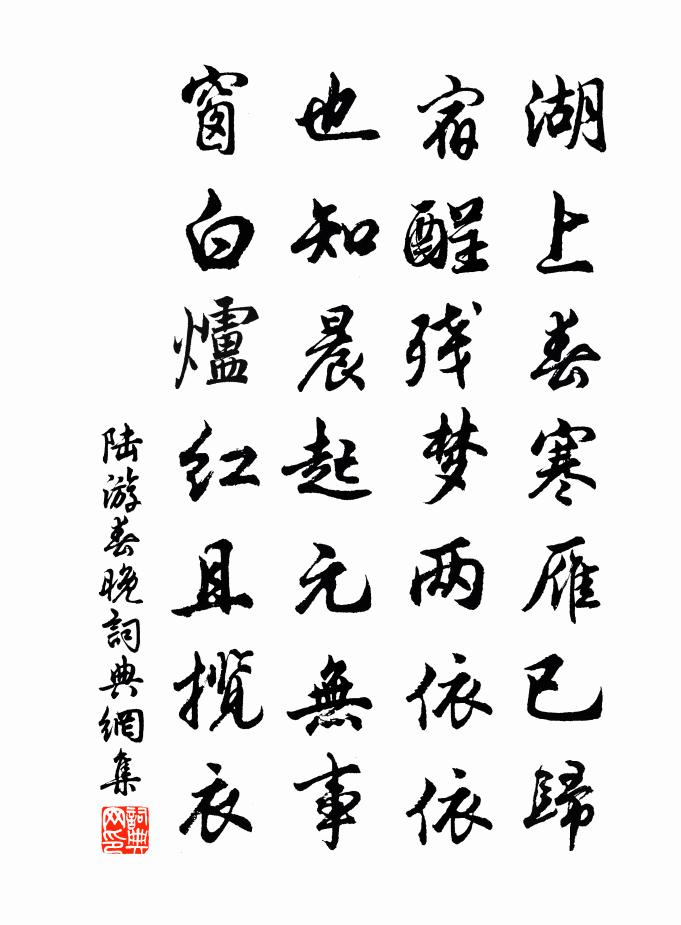 湖上春寒雁已歸
宿醒残梦两依依
也知晨起元無事
窗白爐红且揽衣
陆游春晚詞典網集
詞典网印